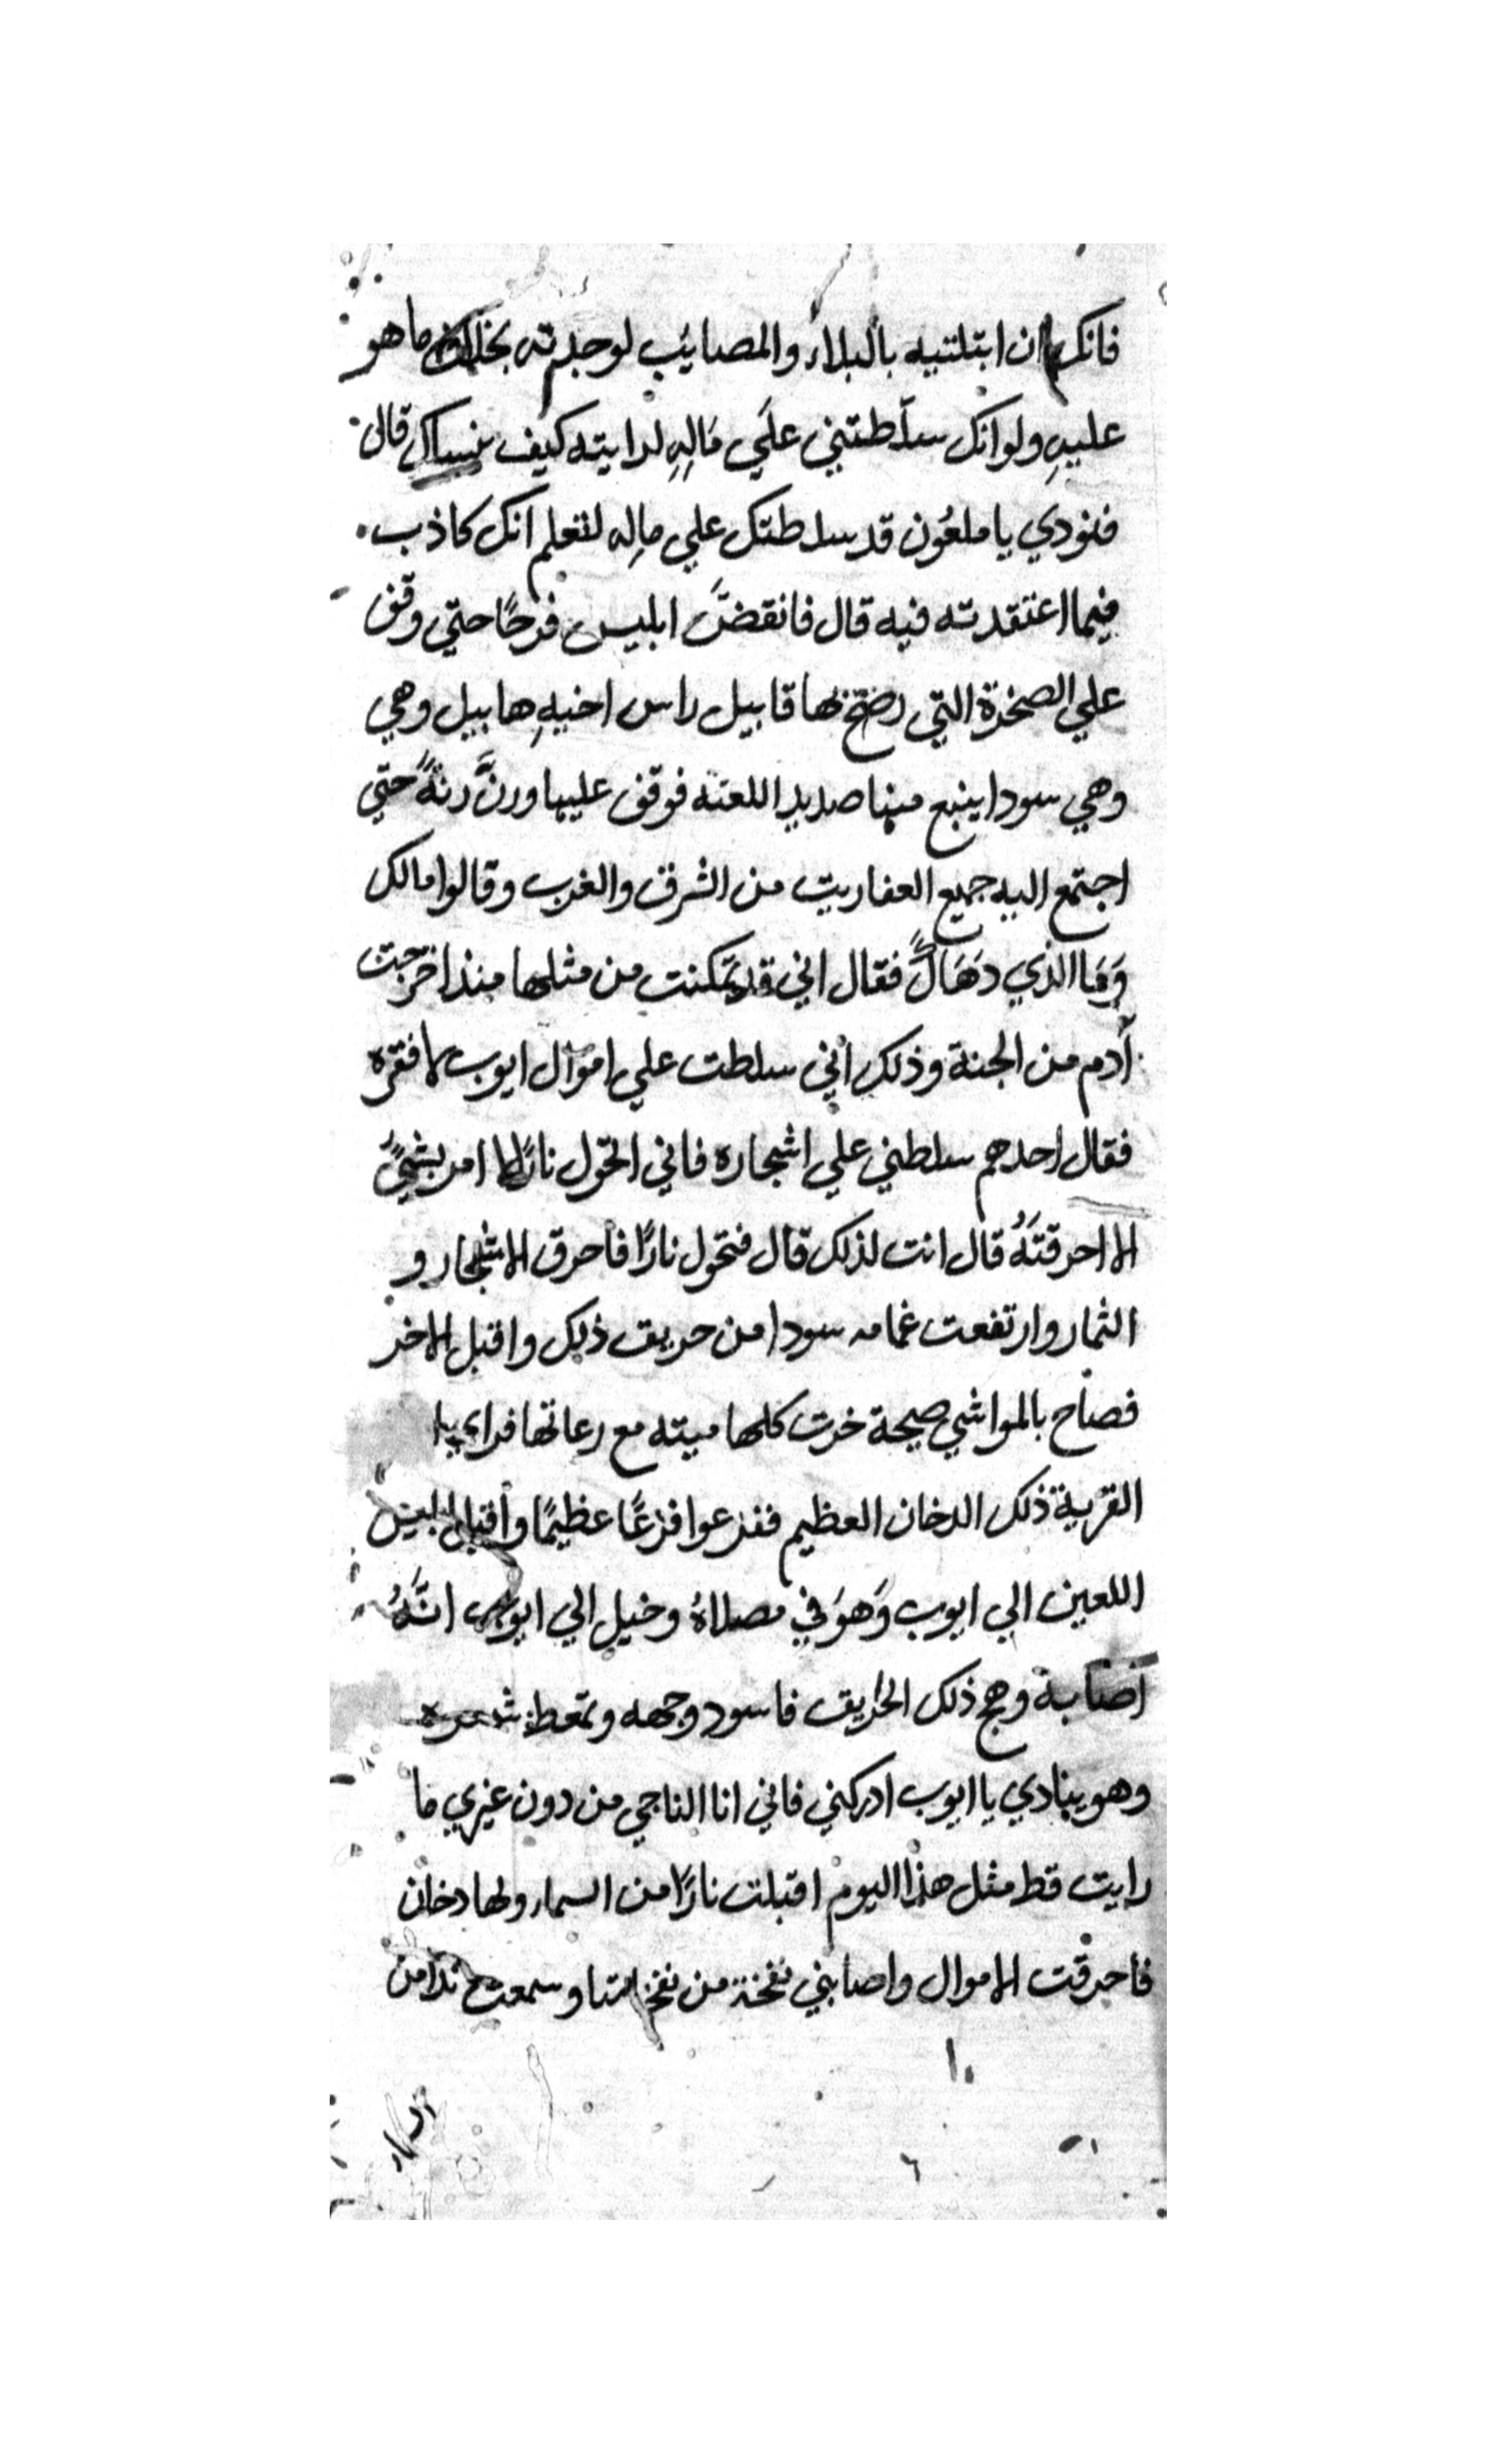 فانك ان ابتلتيه بالبلاء والمصايب لوجدته بخلاف ما هو
عليهِ ولو انك سلّطتني علَي مَالِهِ لرايته كيف ينساك قال
فنودي يا ملعُون قد سلطتك علي مالِه لتعلم انك كاذب
فيما اعتقدته فيه قال فانقضَّ ابليس فرحًا حتي وقف
علي الصخرة التي رضخ بها قابيل راس اخيهِ هابيل وهي
وهي سودا ينبع منها صديد اللعنه فوقف عليها ورنَّ رنةً حتي
اجتمع اليه جميع العفاريت من الشرق والغرب وقالوا مالك
وَمَا الذي دَهَاكَ فقال اني قد تمكنت من مثلها منذ اخرجت
آدم من الجنة وذلك اني سلطت علي اموال ايوب لافقره
فقال احدهم سلطني علي اشجاره فاني اتحول نارًا لا امر بشيٍ
الا احرقتَهُ قال انت لذلك قال فتحول نارًا فاحرق الاشجار و
الثمار وارتفعت غمامه سودا من حريق ذلك واقبل الاخر
فصاح بالمواشي صيحة خرت كلها ميته مع رعاتها فراي
القرية ذلك الدخان العظيم ففزعوا فزعًا عظيمًا واقبل ابليس
اللعين الي ايوب وَهوَ في مصلاهُ وخيل الي ايوب انَّهُ
اصابة وهج ذلك الحريق فاسود وجهه وتمعط شعره
وهو ينادي يا ايوب ادركني فاني انا الناجي من دون غيري ما
رايت قط مثل هذا اليوم اقبلت نارًا من السماء ولها دخان
فاحرقت الاموال واصابني نفخة من نفخاتها وسمعت ندا من